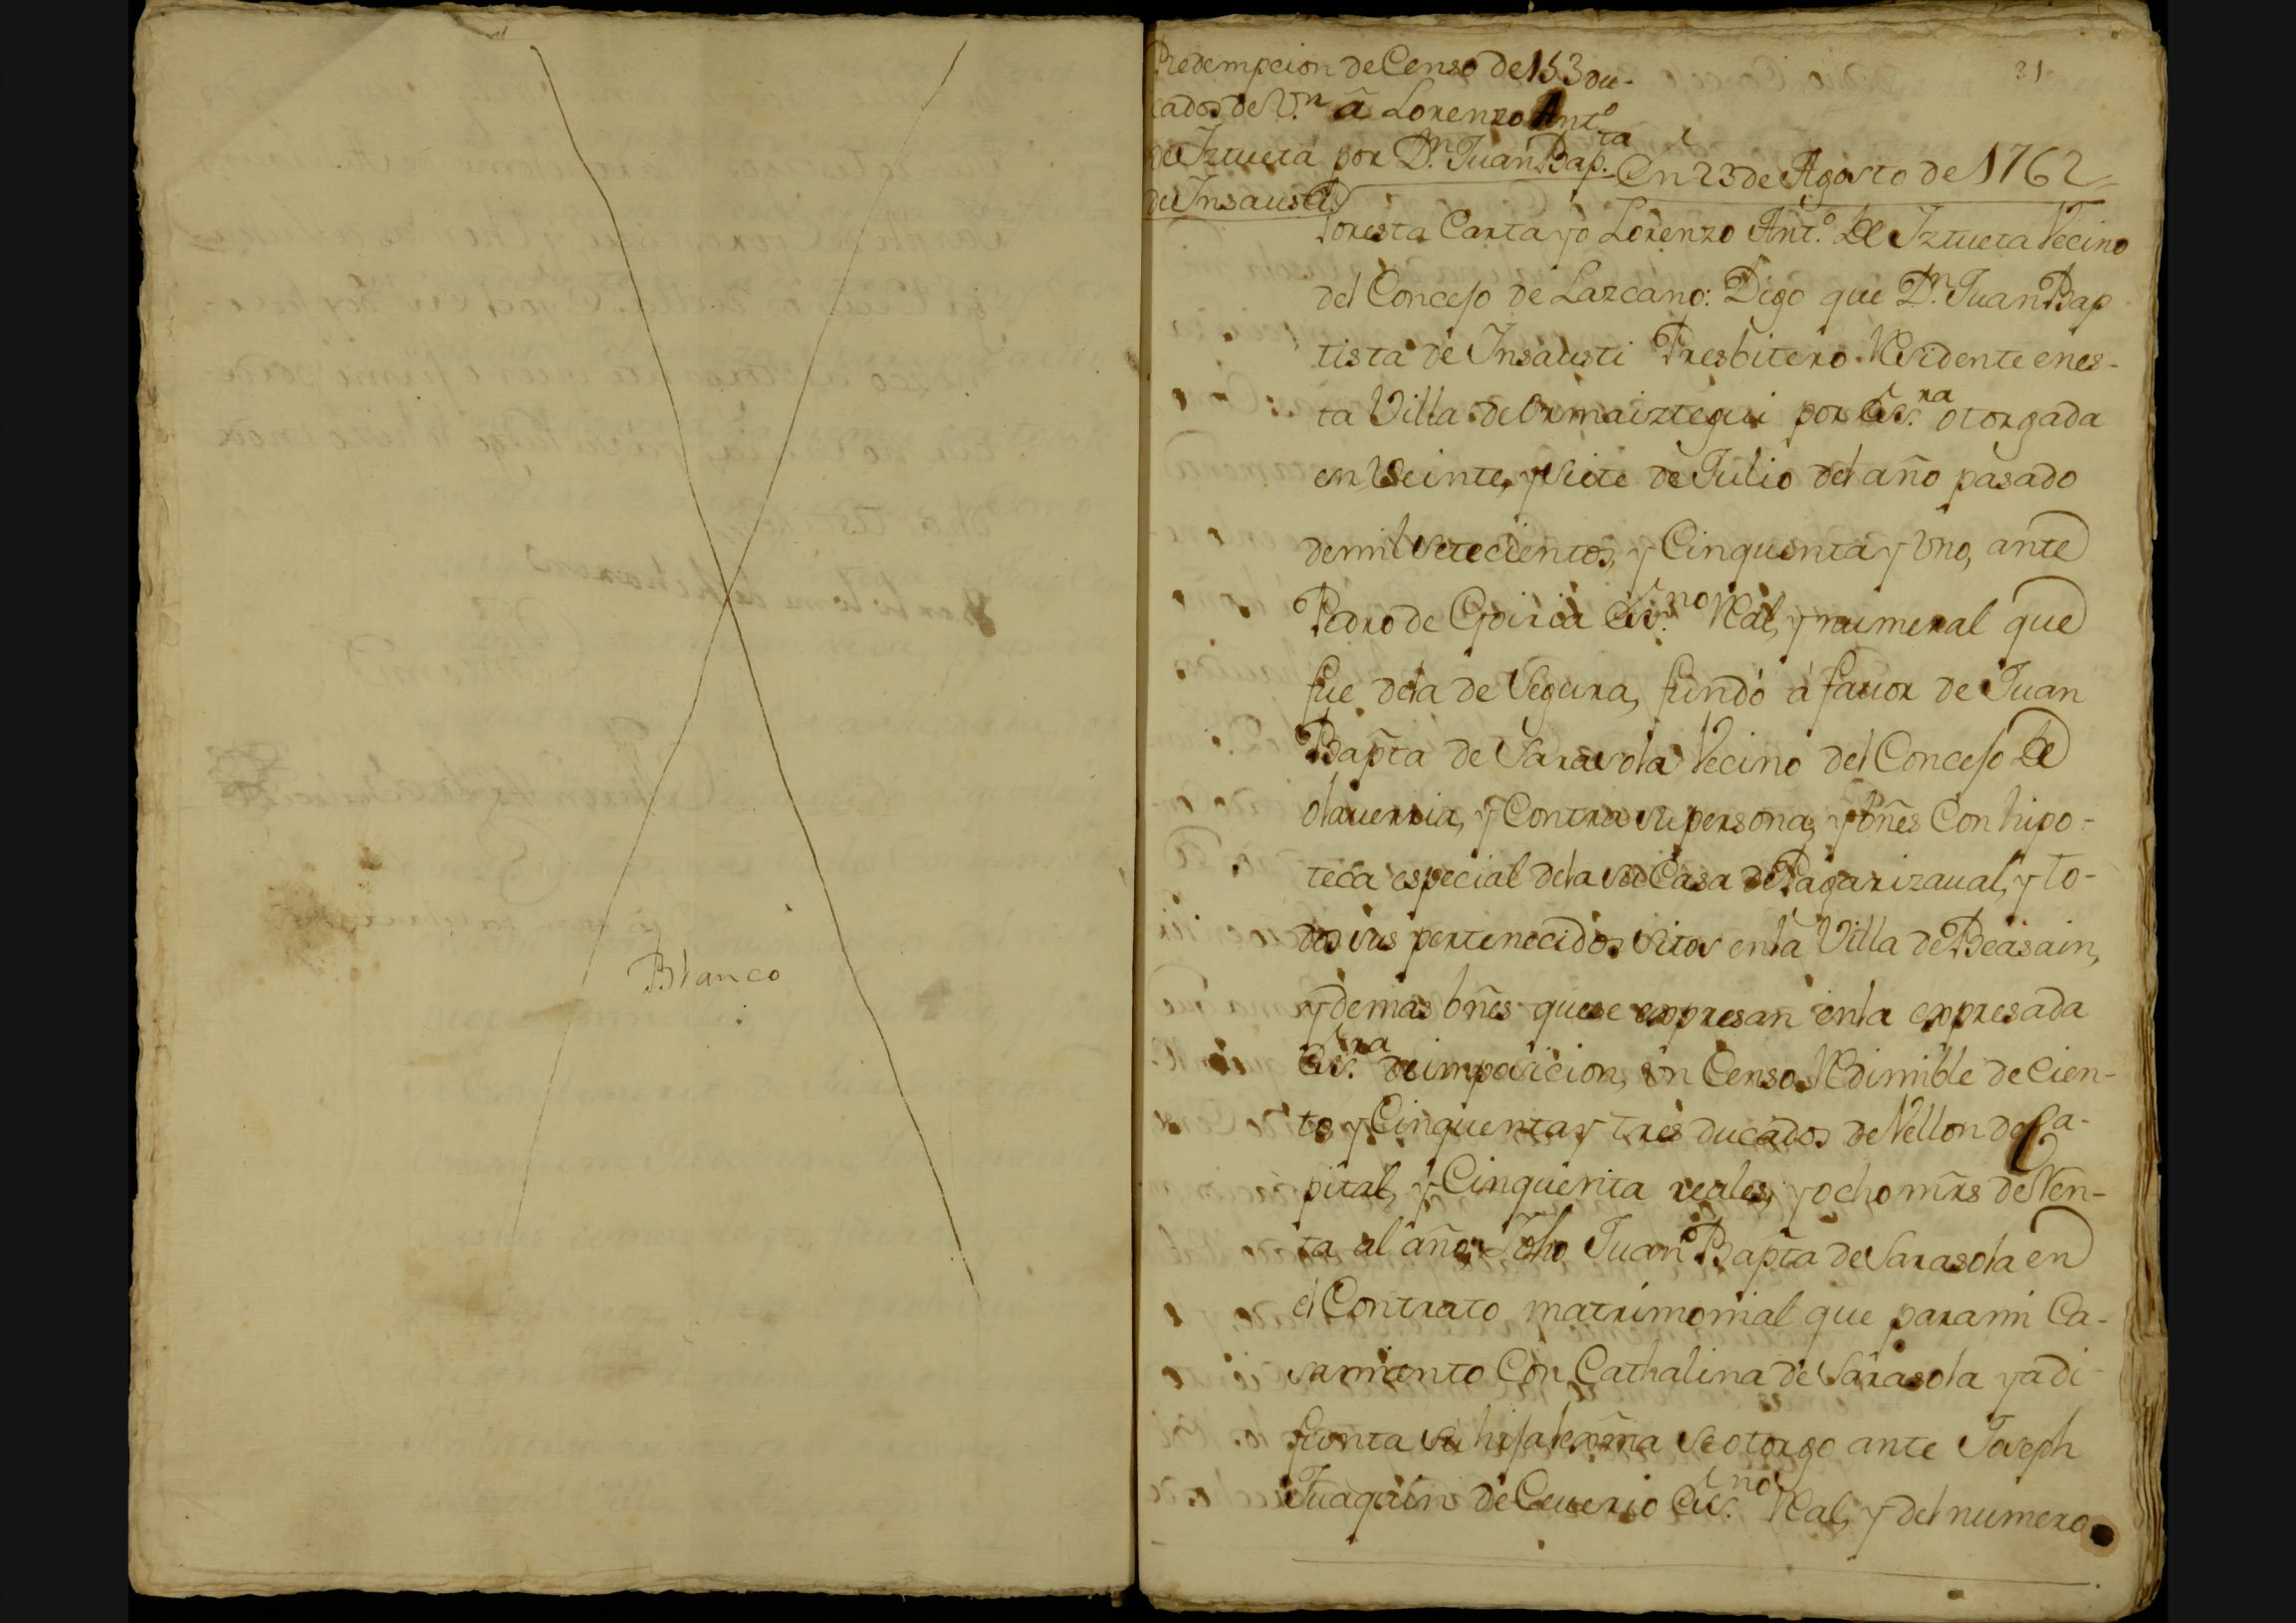 Blanco
31
Redempcion de Censo de 153 du-
cados de V.n â Lorenzo Ant.o
de Iztueta por D.n Juan Bap.ta
de Insausti
En 23 de Agosto de 1762
Por esta Carta yo Lorenzo Ant.o de Iztueta Vecino
del Concejo de Lazcano: Digo que D.n Juan Bap
tista de Insausti Presbitero Residente en es-
ta Villa de Ormaiztegui por Ess.ra otorgada
en Veinte, y siete de Julio del año pasado
de mil setecientos, y Cinquenta y Uno, ante
Pedro de Goiria Ess.no Real, y numeral que
fue dela de Segura, fundó á fauor de Juan
Bap̃ta de Sarasola Vecino del Concejo de
olauerria, y Contra su persona, y bñes Con hipo-
teca especial dela su Casa de Pagarizaual, y to-
dos sus pertenecidos sitos enla Villa de Beasain,
y demas bñes que se expresan enla expresada
Ess.ra de imposicion, un Censo Redimible de Cien-
to, y Cinquenta y tres ducados de Vellon de Ca-
pital, y Cinquenta reales, y ocho mr̃s de Ren-
ta al año, y dho Juan Bap̃ta de Sarasola en
el Contrato matrimonial que para mi Ca-
samiento Con Cathalina de Sarasola ya di-
funta su hija lexma se otorgo ante Joseph
Juaquin de Ceuerio Ess.no Real, y del numero